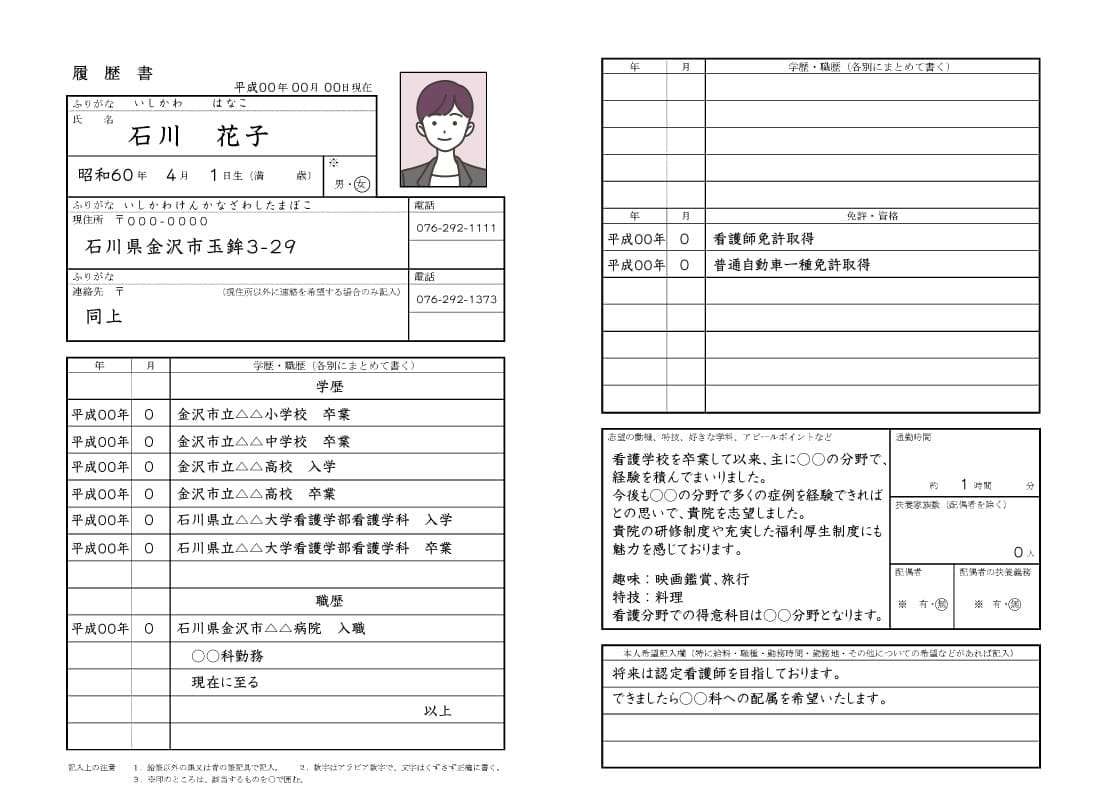 履歴書
平成00年00月00日現在
ふりがな いしかわ はなこ
氏 名
石川 花子
昭和60年 4月 1日生（満 歳）
※
男・女
ふりがな いしかわけんかなざわしたまぼこ
現住所 〒000-0000
石川県金沢市玉鉾3-29
電話
076-292-1111
ふりがな
連絡先 〒 （現住所以外に連絡を希望する場合のみ記入）
同上
電話
076-292-1373
年 月 学歴・職歴（各別にまとめて書く）
学歴
平成00年 0 金沢市立△△小学校 卒業
平成00年 0 金沢市立△△中学校 卒業
平成00年 0 金沢市立△△高校 入学
平成00年 0 金沢市立△△高校 卒業
平成00年 0 石川県立△△大学看護学部看護学科 入学
平成00年 0 石川県立△△大学看護学部看護学科 卒業
職歴
平成00年 0 石川県金沢市△△病院 入職
○○科勤務
現在に至る
以上
記入上の注意 1．鉛筆以外の黒又は青の筆記具で記入。 2．数字はアラビア数字で、文字はくずさず正確に書く。
3．※印のところは、該当するものを○で囲む。
年 月 学歴・職歴（各別にまとめて書く）
年 月 免許・資格
平成00年 0 看護師免許取得
平成00年 0 普通自動車一種免許取得
志望の動機、特技、好きな学科、アピールポイントなど
看護学校を卒業して以来、主に○○の分野で、
経験を積んでまいりました。
今後も○○の分野で多くの症例を経験できれば
との思いで、貴院を志望しました。
貴院の研修制度や充実した福利厚生制度にも
魅力を感じております。
趣味：映画鑑賞、旅行
特技：料理
看護分野での得意科目は○○分野となります。
通勤時間
約 1時間 分
扶養家族数（配偶者を除く）
0人
配偶者
※ 有・無
配偶者の扶養義務
※ 有・無
本人希望記入欄（特に給料・職種・勤務時間・勤務地・その他についての希望などがあれば記入）
将来は認定看護師を目指しております。
できましたら○○科への配属を希望いたします。